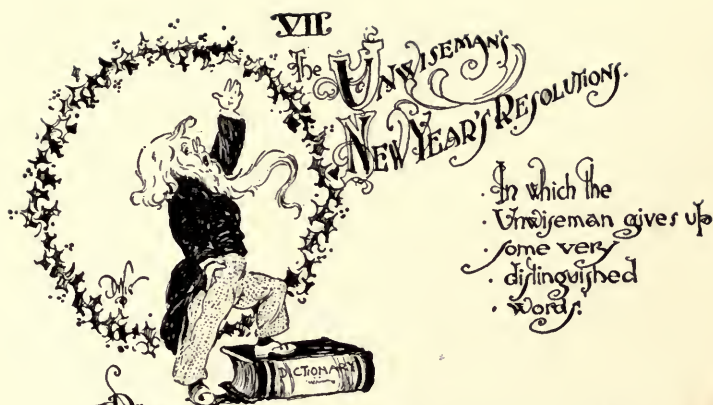 VII.
The UNWISEMAN'S
NEW YEAR'S RESOLUTIONS.
In which the
· Unwiseman gives up
· some very
· distinguished
· words.
DICTIONARY